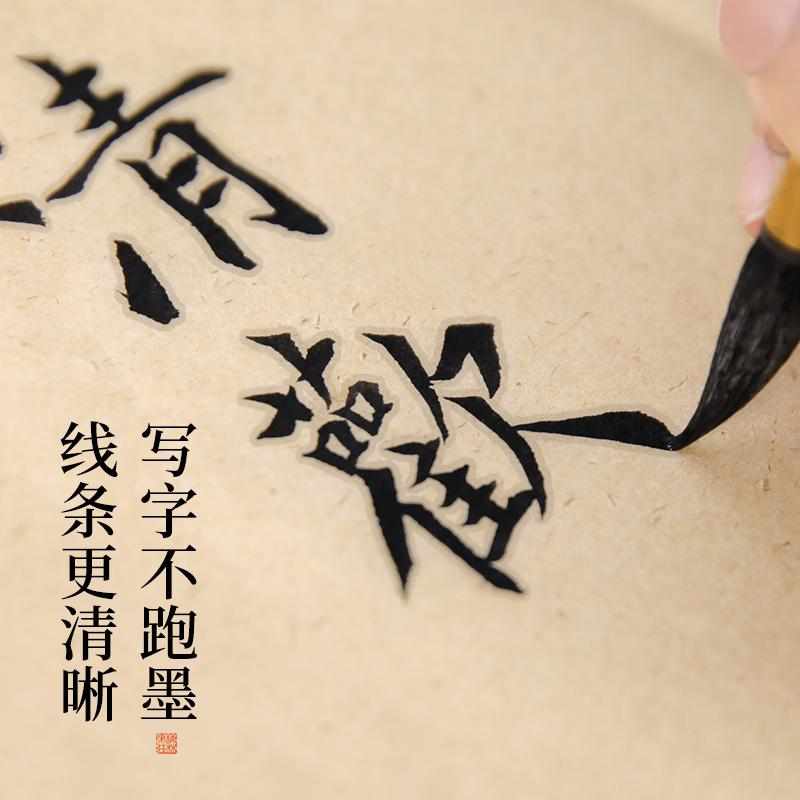 清歡
写字不跑墨
线条更清晰